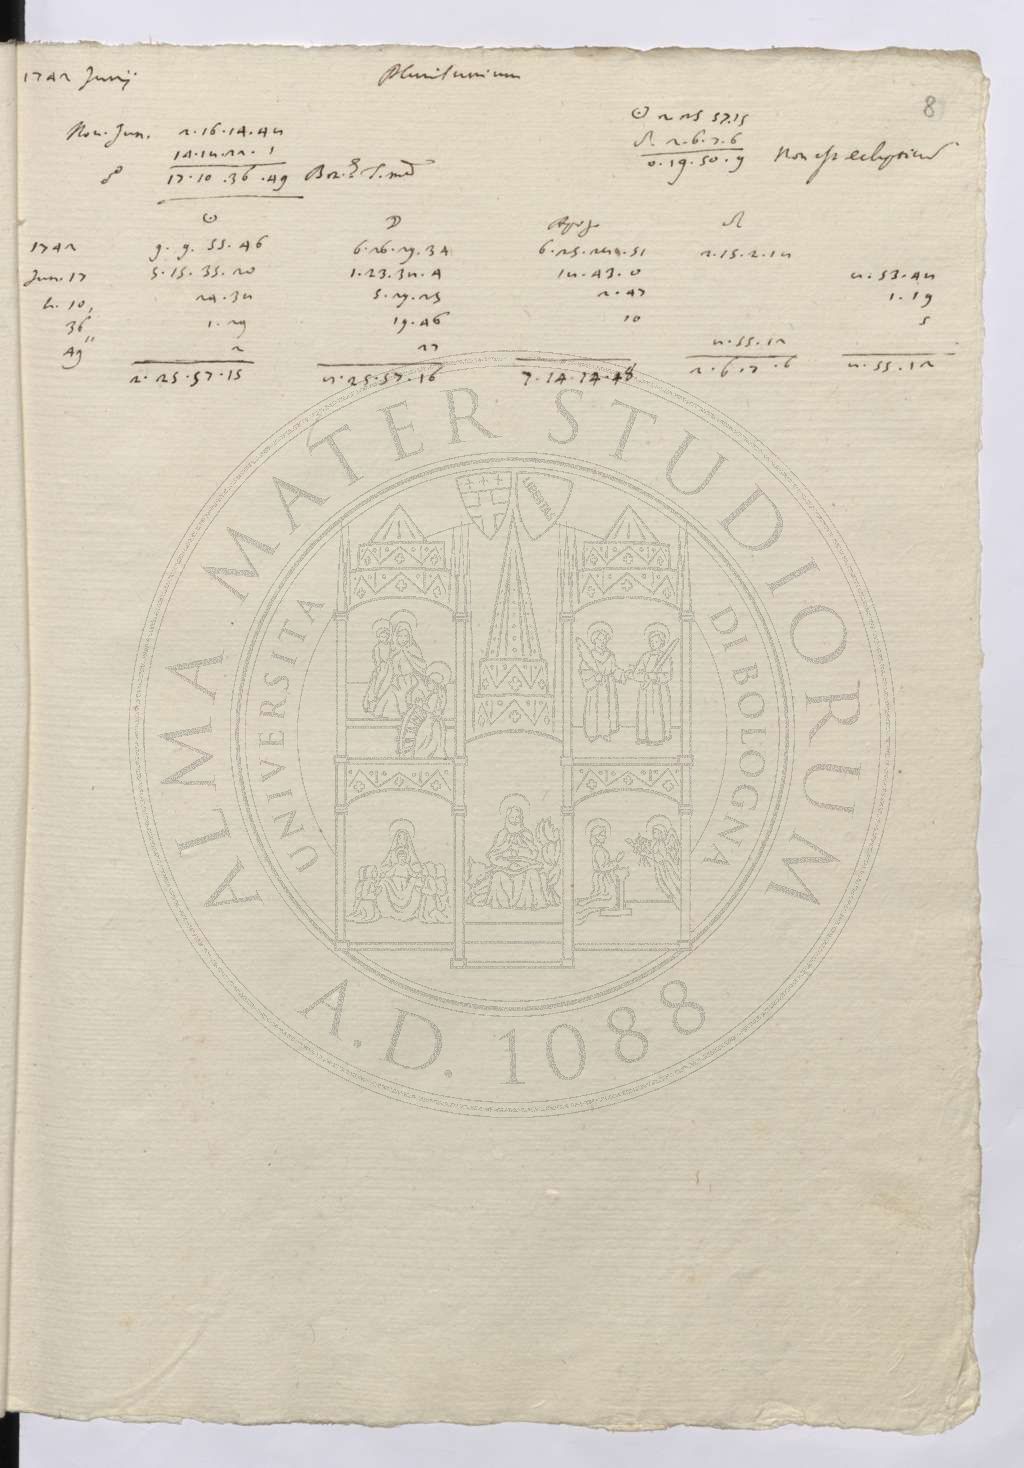 1742 Junij Plenilunium
8
Nov. Jun. 2.16.14.48
14.18.22.1
☍ 17.10.36.49 Bon.æ T. med
☉ 2 25 57.15
☊ 2.6.7.6
0.19.50.9 Non est eclypticum
☉ ☽ Apog. ☊
1742 9.9.55.46 6.26.29.34 6.25.28.51 2.15.2.18
Jun. 17 5.15.35.20 1.23.38.4 18.43.0 8.53.48
h. 10, 24.38 5.29.25 2.47 1.19
36' 1.29 19.46 10 5
49'' 2 27 8.55.12
2.25.57.15 8.25.57.16 7.14.14.48 2.6.7.6 8.55.12
ALMA MATER STUDIORUM
UNIVERSITÀ DI BOLOGNA
LIBERTAS
A.D. 1088